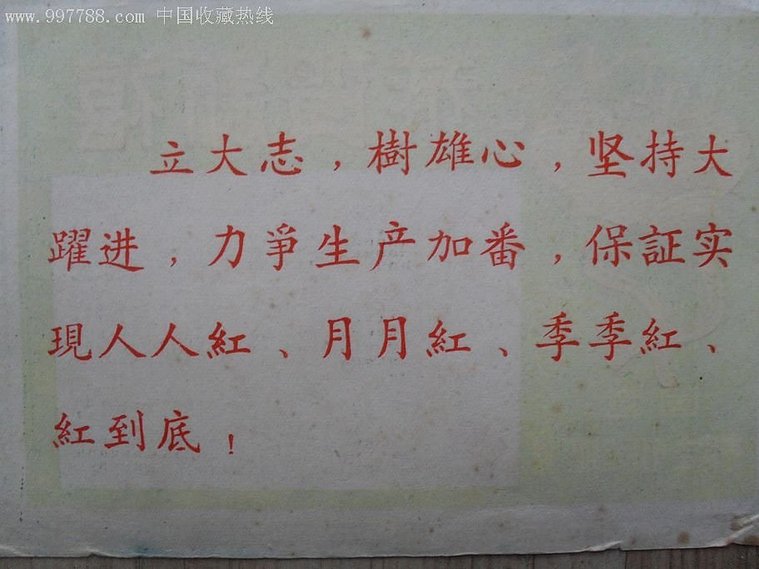 www.997788.com 中国收藏热线
立大志，樹雄心，坚持大
躍进，力爭生产加番，保証实
現人人紅、月月紅、季季紅、
紅到底！